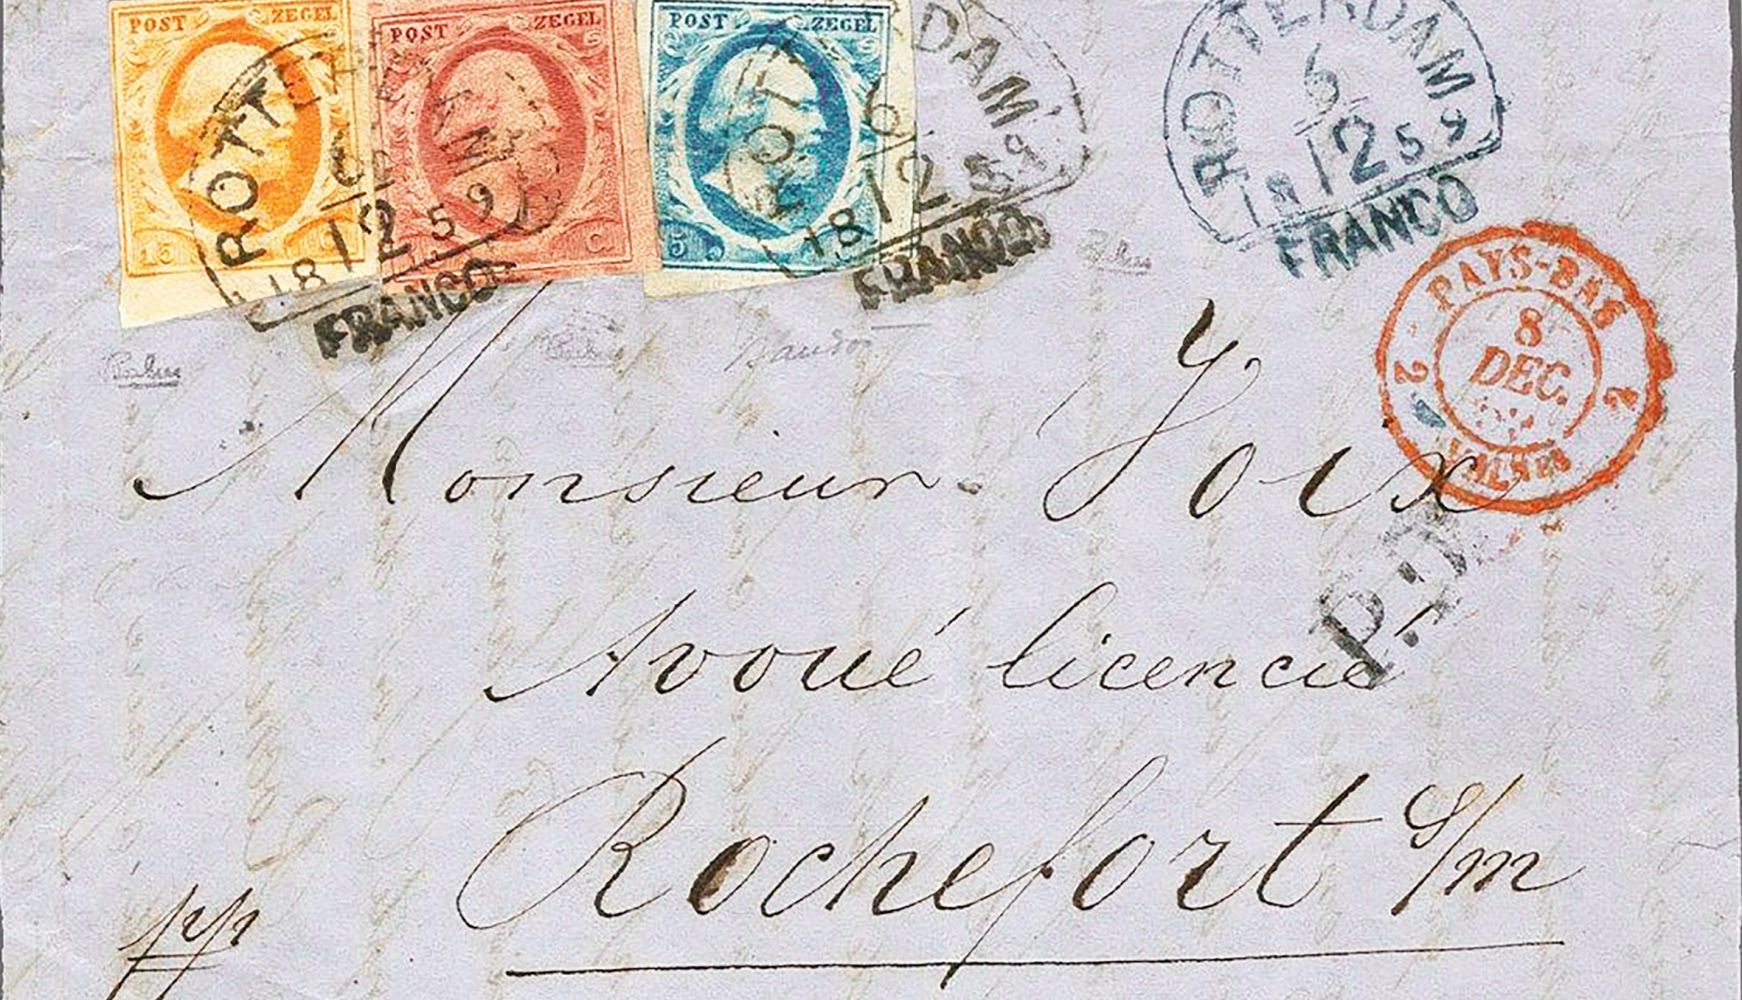 POST ZEGEL
15
POST ZEGEL
C.
POST ZEGEL
5
ROTTERDAM
6/12
18 59
FRANCO
ROTTERDAM
6/12
18 59
FRANCO
ROTTERDAM
6/12
18 59
FRANCO
PAYS-BAS
2 8 2
DEC.
P.D.
Monsieur Joix
Avoué licencié
Rochefort s/m
pp